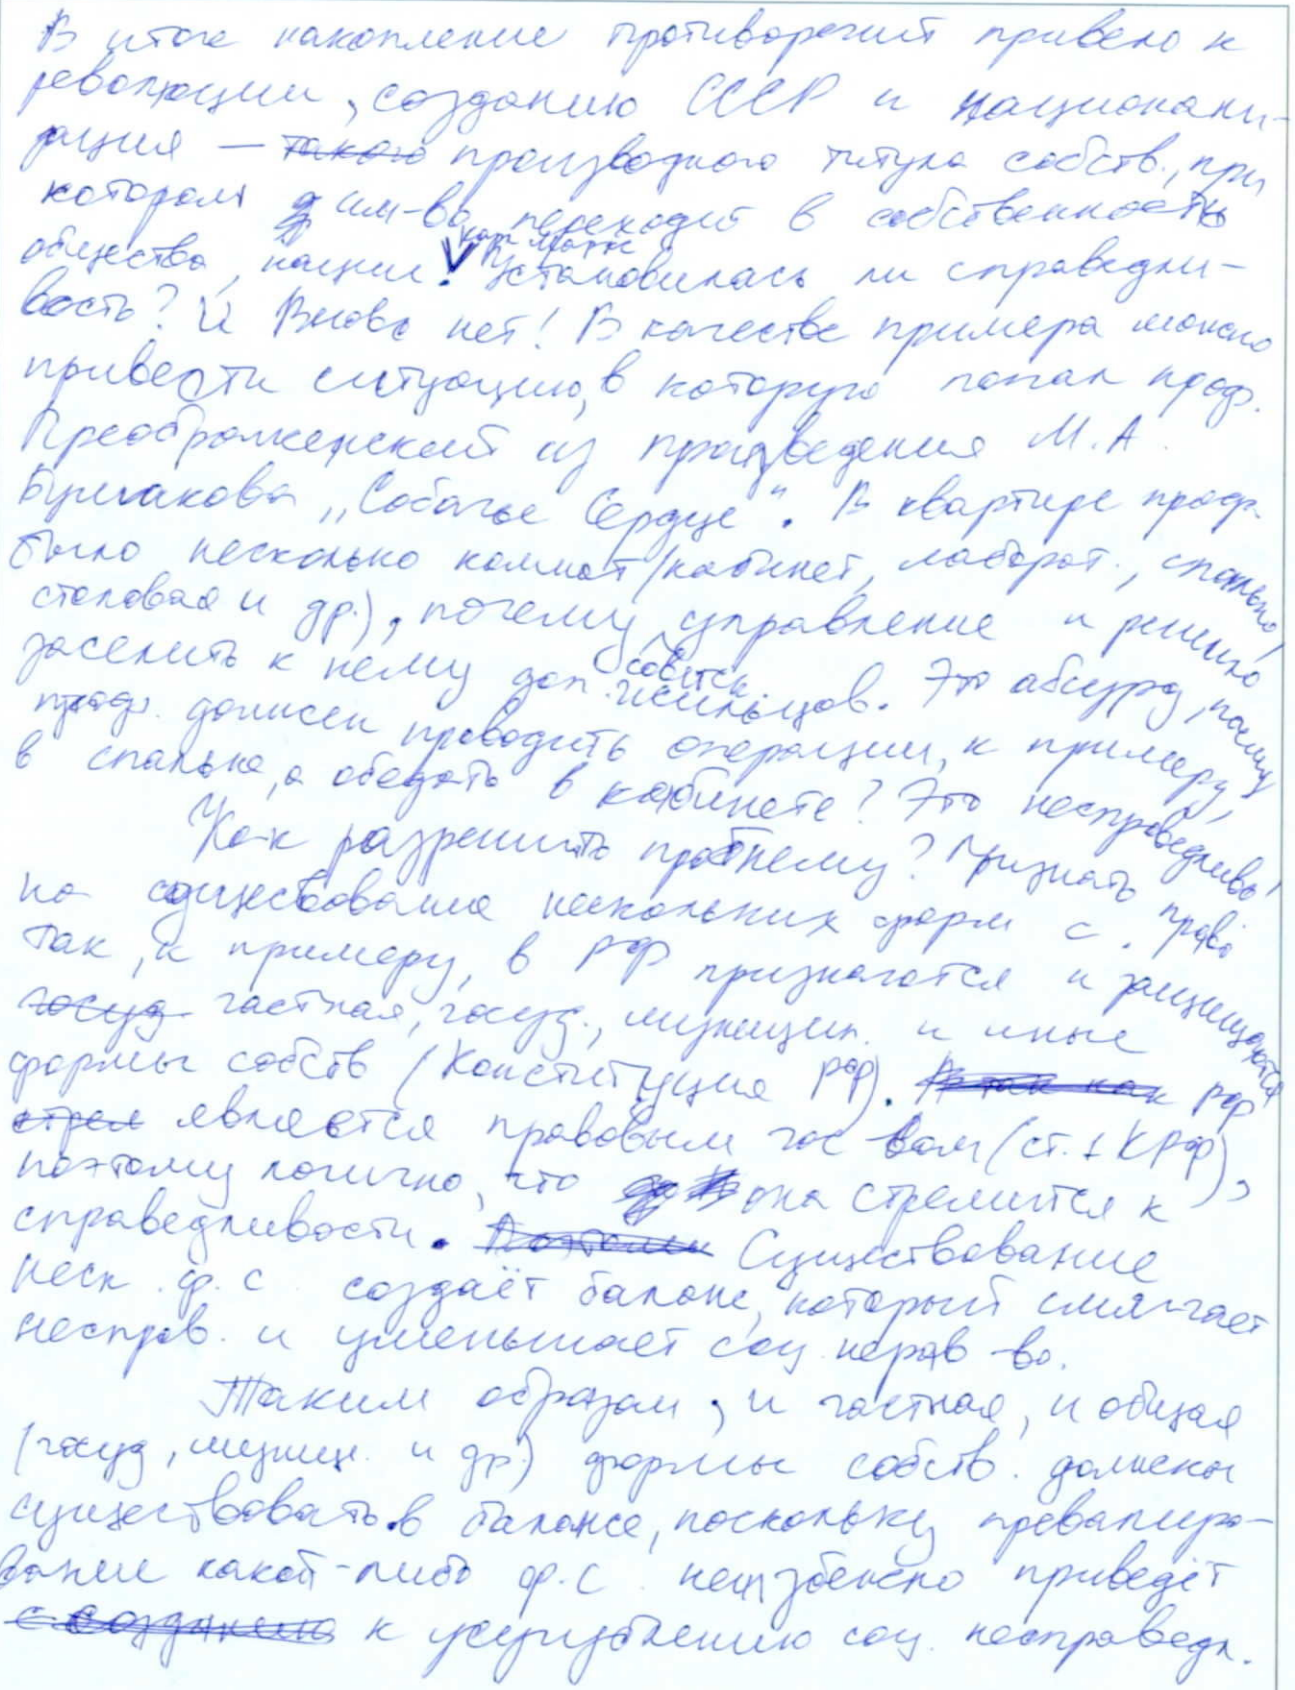 В итоге накопление противоречий привело к
революции, созданию СССР и национали-
зация — такого производного титула собств., при
котором им-во переходит в собственность
общества, нации. Установилась ли справедли-
вость? И Вновь нет! В качестве примера можно
привести ситуацию, в которую попал проф.
Преображенский из произведения М.А.
Булгакова „Собачье Сердце". В квартире проф.
было несколько комнат (кабинет, лаборат., спальня,
столовая и др.), почему управление и решило
заселить к нему доп. советск. жильцов. Это абсурд, почему
проф. должен проводить операции, к примеру,
в спальне, а обедать в кабинете? Это несправедливо!
Как разрешить проблему? Признать право
на существование нескольких форм с.
Так, к примеру, в РФ признаются и защищаются
госуд. частная, госуд., муницип. и иные
формы собств (Конституция РФ). РФ
стрем является правовым гос-вом (ст. 1 КРФ),
поэтому логично, что она стремится к
справедливости. Поэтому Существование
неск. ф. с. создаёт баланс, который смягчает
несправ. и уменьшает соц. нерав-во.
Таким образом, и частная, и общая
(госуд, муницип. и др.) формы собств. должны
существовать в балансе, поскольку превалиро-
вание какой-либо ф. с. неизбежно приведёт
с созданию к усугублению соц. несправедл.